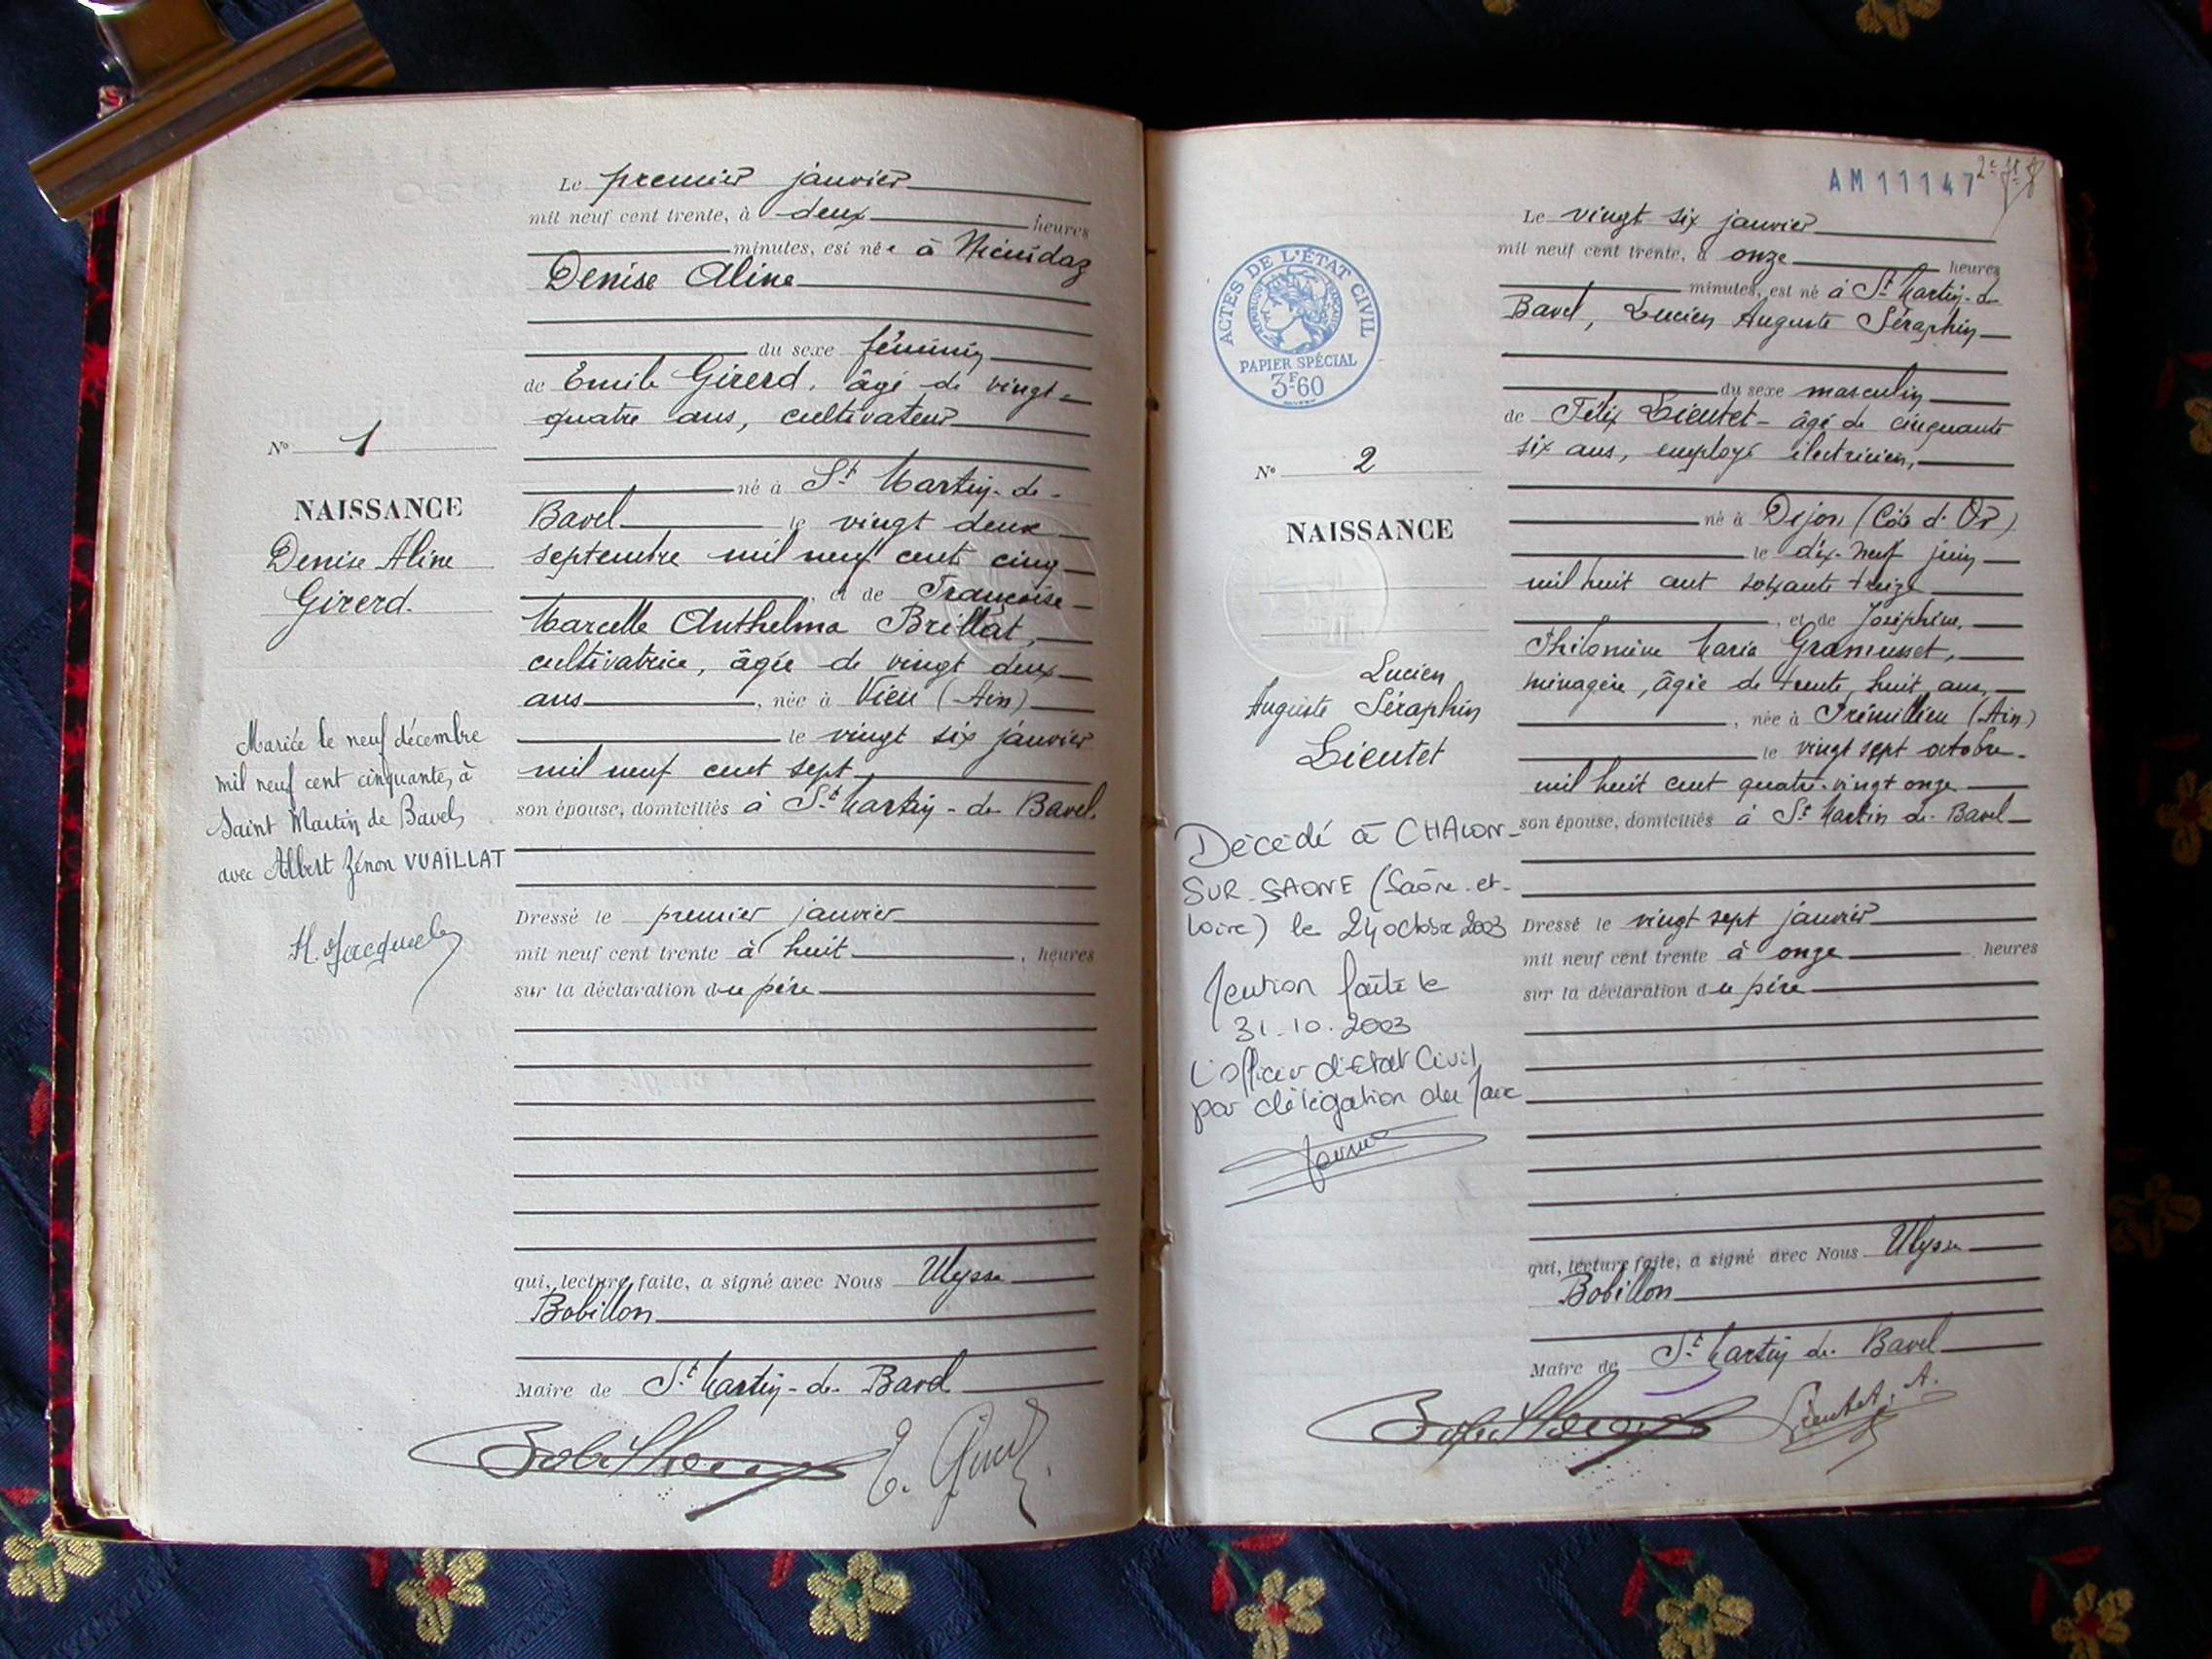 Le premier janvier
mil neuf cent trente, à deux heures
minutes, est née à
Denise Aline
du sexe féminin
de Emile Girerd, âgé de vingt-
quatre ans, cultivateur
né à St Martin-de-
Bavel le vingt deux
septembre mil neuf cent cinq
, et de Françoise
Marcelle Anthelma Brillat,
cultivatrice, âgée de vingt deux
ans, née à Vieu (Ain)
le vingt six janvier
mil neuf cent sept
son épouse, domiciliés à St Martin-de Bavel.
Dressé le premier janvier
mil neuf cent trente à huit, heures
sur la déclaration du père
qui, lecture faite, a signé avec Nous Ulysse
Bobillon
Maire de St Martin-de-Bavel
E. Girerd
No 1
NAISSANCE
Denise Aline
Girerd.
Mariée le neuf décembre
mil neuf cent cinquante, à
Saint Martin de Bavel,
avec Albert Zénon VUAILLAT
AM11147
ACTES DE L'ÉTAT CIVIL
PAPIER SPÉCIAL
3F60
Le vingt six janvier
mil neuf cent trente, à onze heures
minutes, est né à St Martin-de
Bavel, Lucien Auguste Séraphin
du sexe masculin
de Félix Lieutet - âgé de cinquante
six ans, employé électricien,
né à Dijon (Côte d'Or)
le dix-neuf juin
mil huit cent soixante treize
, et de Joséphine,
Philomène Maria Gramusset,
ménagère, âgée de trente huit ans,
, née à Prémillieu (Ain)
le vingt sept octobre
mil huit cent quatre-vingt onze
son épouse, domiciliés à St Martin de Bavel
Dressé le vingt sept janvier
mil neuf cent trente à onze heures
sur la déclaration du père
qui, lecture faite, a signé avec Nous Ulysse
Bobillon
Maire de St Martin de Bavel
Lieutet A.
No 2
NAISSANCE
Lucien
Auguste Séraphin
Lieutet
Décédé à CHALON-
SUR-SAONE (Saône-et-
Loire) le 24 octobre 2003
Mention faite le
31.10.2003
L'officier d'Etat Civil
par délégation du Maire